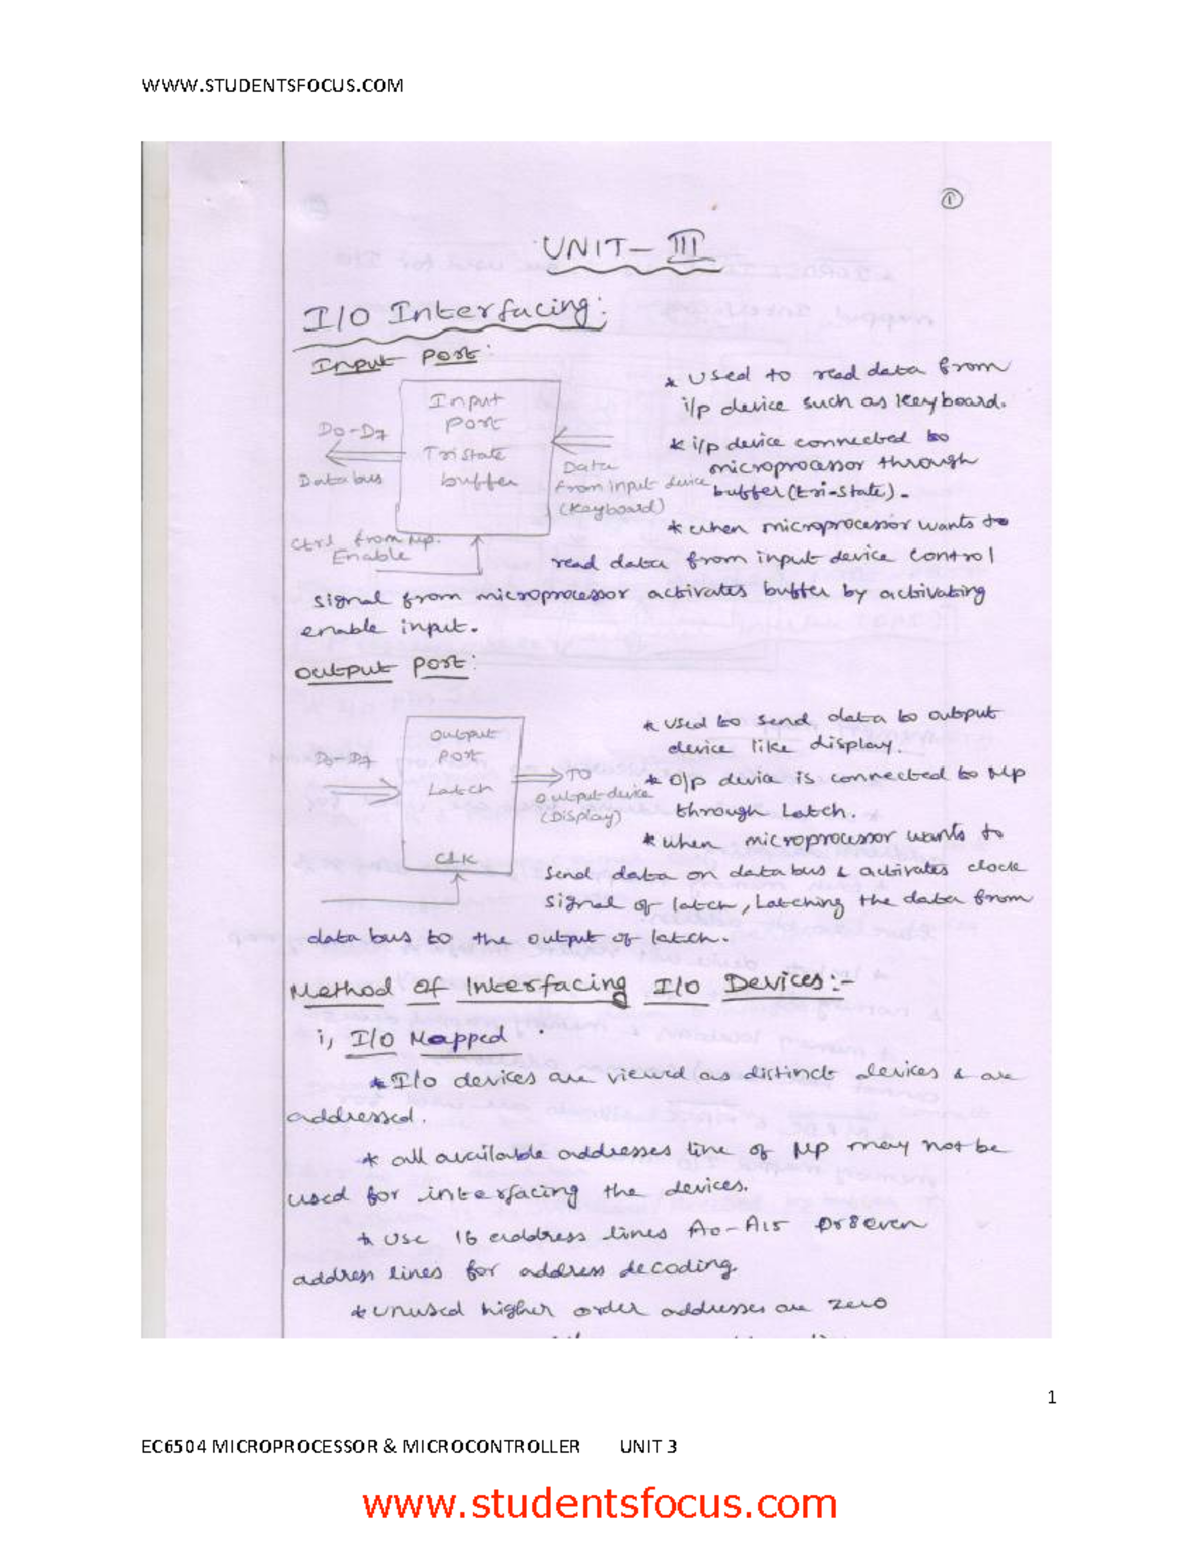 WWW.STUDENTSFOCUS.COM
①
UNIT- III
I/O Interfacing:
Input Port:
Input
Port
Tristate
buffer
D0-D7
Databus
Data
from input device
(Keyboard)
Ctrl from Mp.
Enable
* Used to read data from
i/p device such as Keyboard.
* i/p device connected to
microprocessor through
buffer (tri-state).
* when microprocessor wants to
read data from input device control
signal from microprocessor activates buffer by activating
enable input.
Output Port:
Output
Port
Latch
CLK
D0-D7
TO
Output device
(Display)
* Used to send data to output
device like display.
* O/p device is connected to Mp
through Latch.
* when microprocessor wants to
send data on databus & activates clock
signal of latch, Latching the data from
data bus to the output of latch.
Method of Interfacing I/O Devices:-
i, I/O Mapped
* I/o devices are viewed as distinct devices & are
addressed.
* all available addresses line of Mp may not be
used for interfacing the devices.
* Use 16 address lines A0-A15 Or 8 even
address lines for address decoding.
* unused higher order addresses are zero
1
EC6504 MICROPROCESSOR & MICROCONTROLLER UNIT 3
www.studentsfocus.com